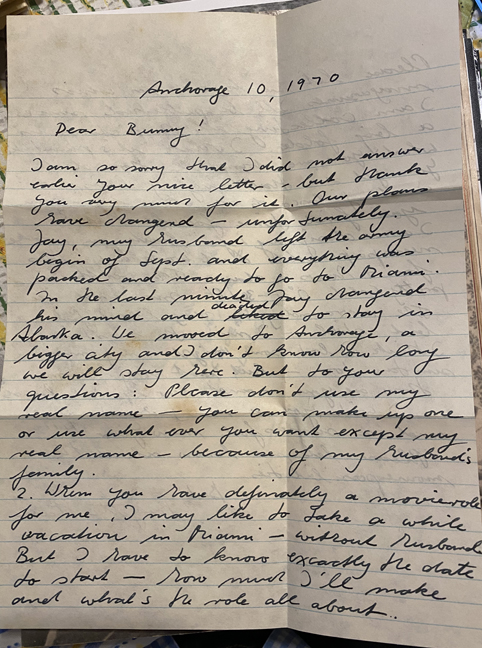 Anchorage 10, 1970
Dear Bunny!
I am so sorry that I did not answer
earlier your nice letter - but thank
you very much for it. Our plans
have changend - unfortunately.
Jay, my husband left the army
begin of Sept. and everything was
packed and ready to go to Miami.
In the last minute Jay changend
his mind and decided to stay in
Alaska. We mooved to Anchorage, a
bigger city and I don't know how long
we will stay here. But to your
questions: Please don't use my
real name - you can make up one
or use what ever you want except my
real name - because of my husband's
family.
2. When you have definately a movie role
for me, I may like to take a while
vacation in Miami - without husband
But I have to know excactly the date
to start - how much I'll make
and what's the role all about..